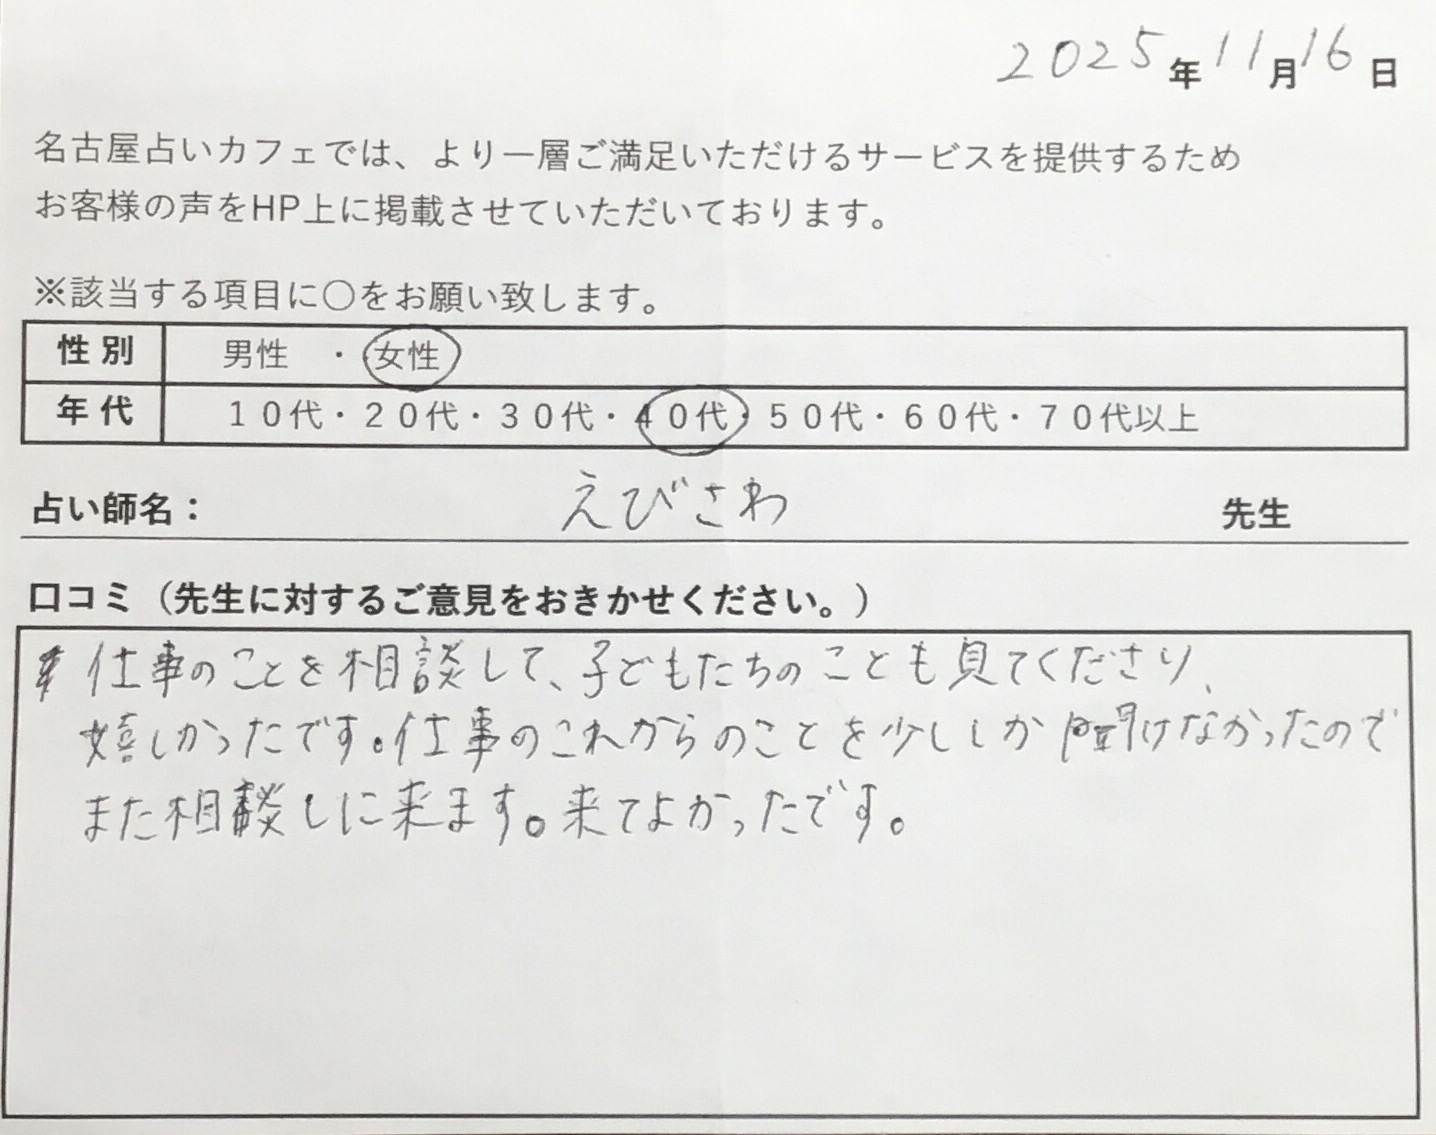 2025年11月16日
名古屋占いカフェでは、より一層ご満足いただけるサービスを提供するため
お客様の声をHP上に掲載させていただいております。
※該当する項目に〇をお願い致します。
性別 男性 ・ 女性
年代 10代・20代・30代・40代・50代・60代・70代以上
占い師名： えびさわ 先生
口コミ（先生に対するご意見をおきかせください。）
仕事のことを相談して、子どもたちのことも見てくださり、
嬉しかったです。仕事のこれからのことを少ししか聞けなかったので
また相談しに来ます。来てよかったです。